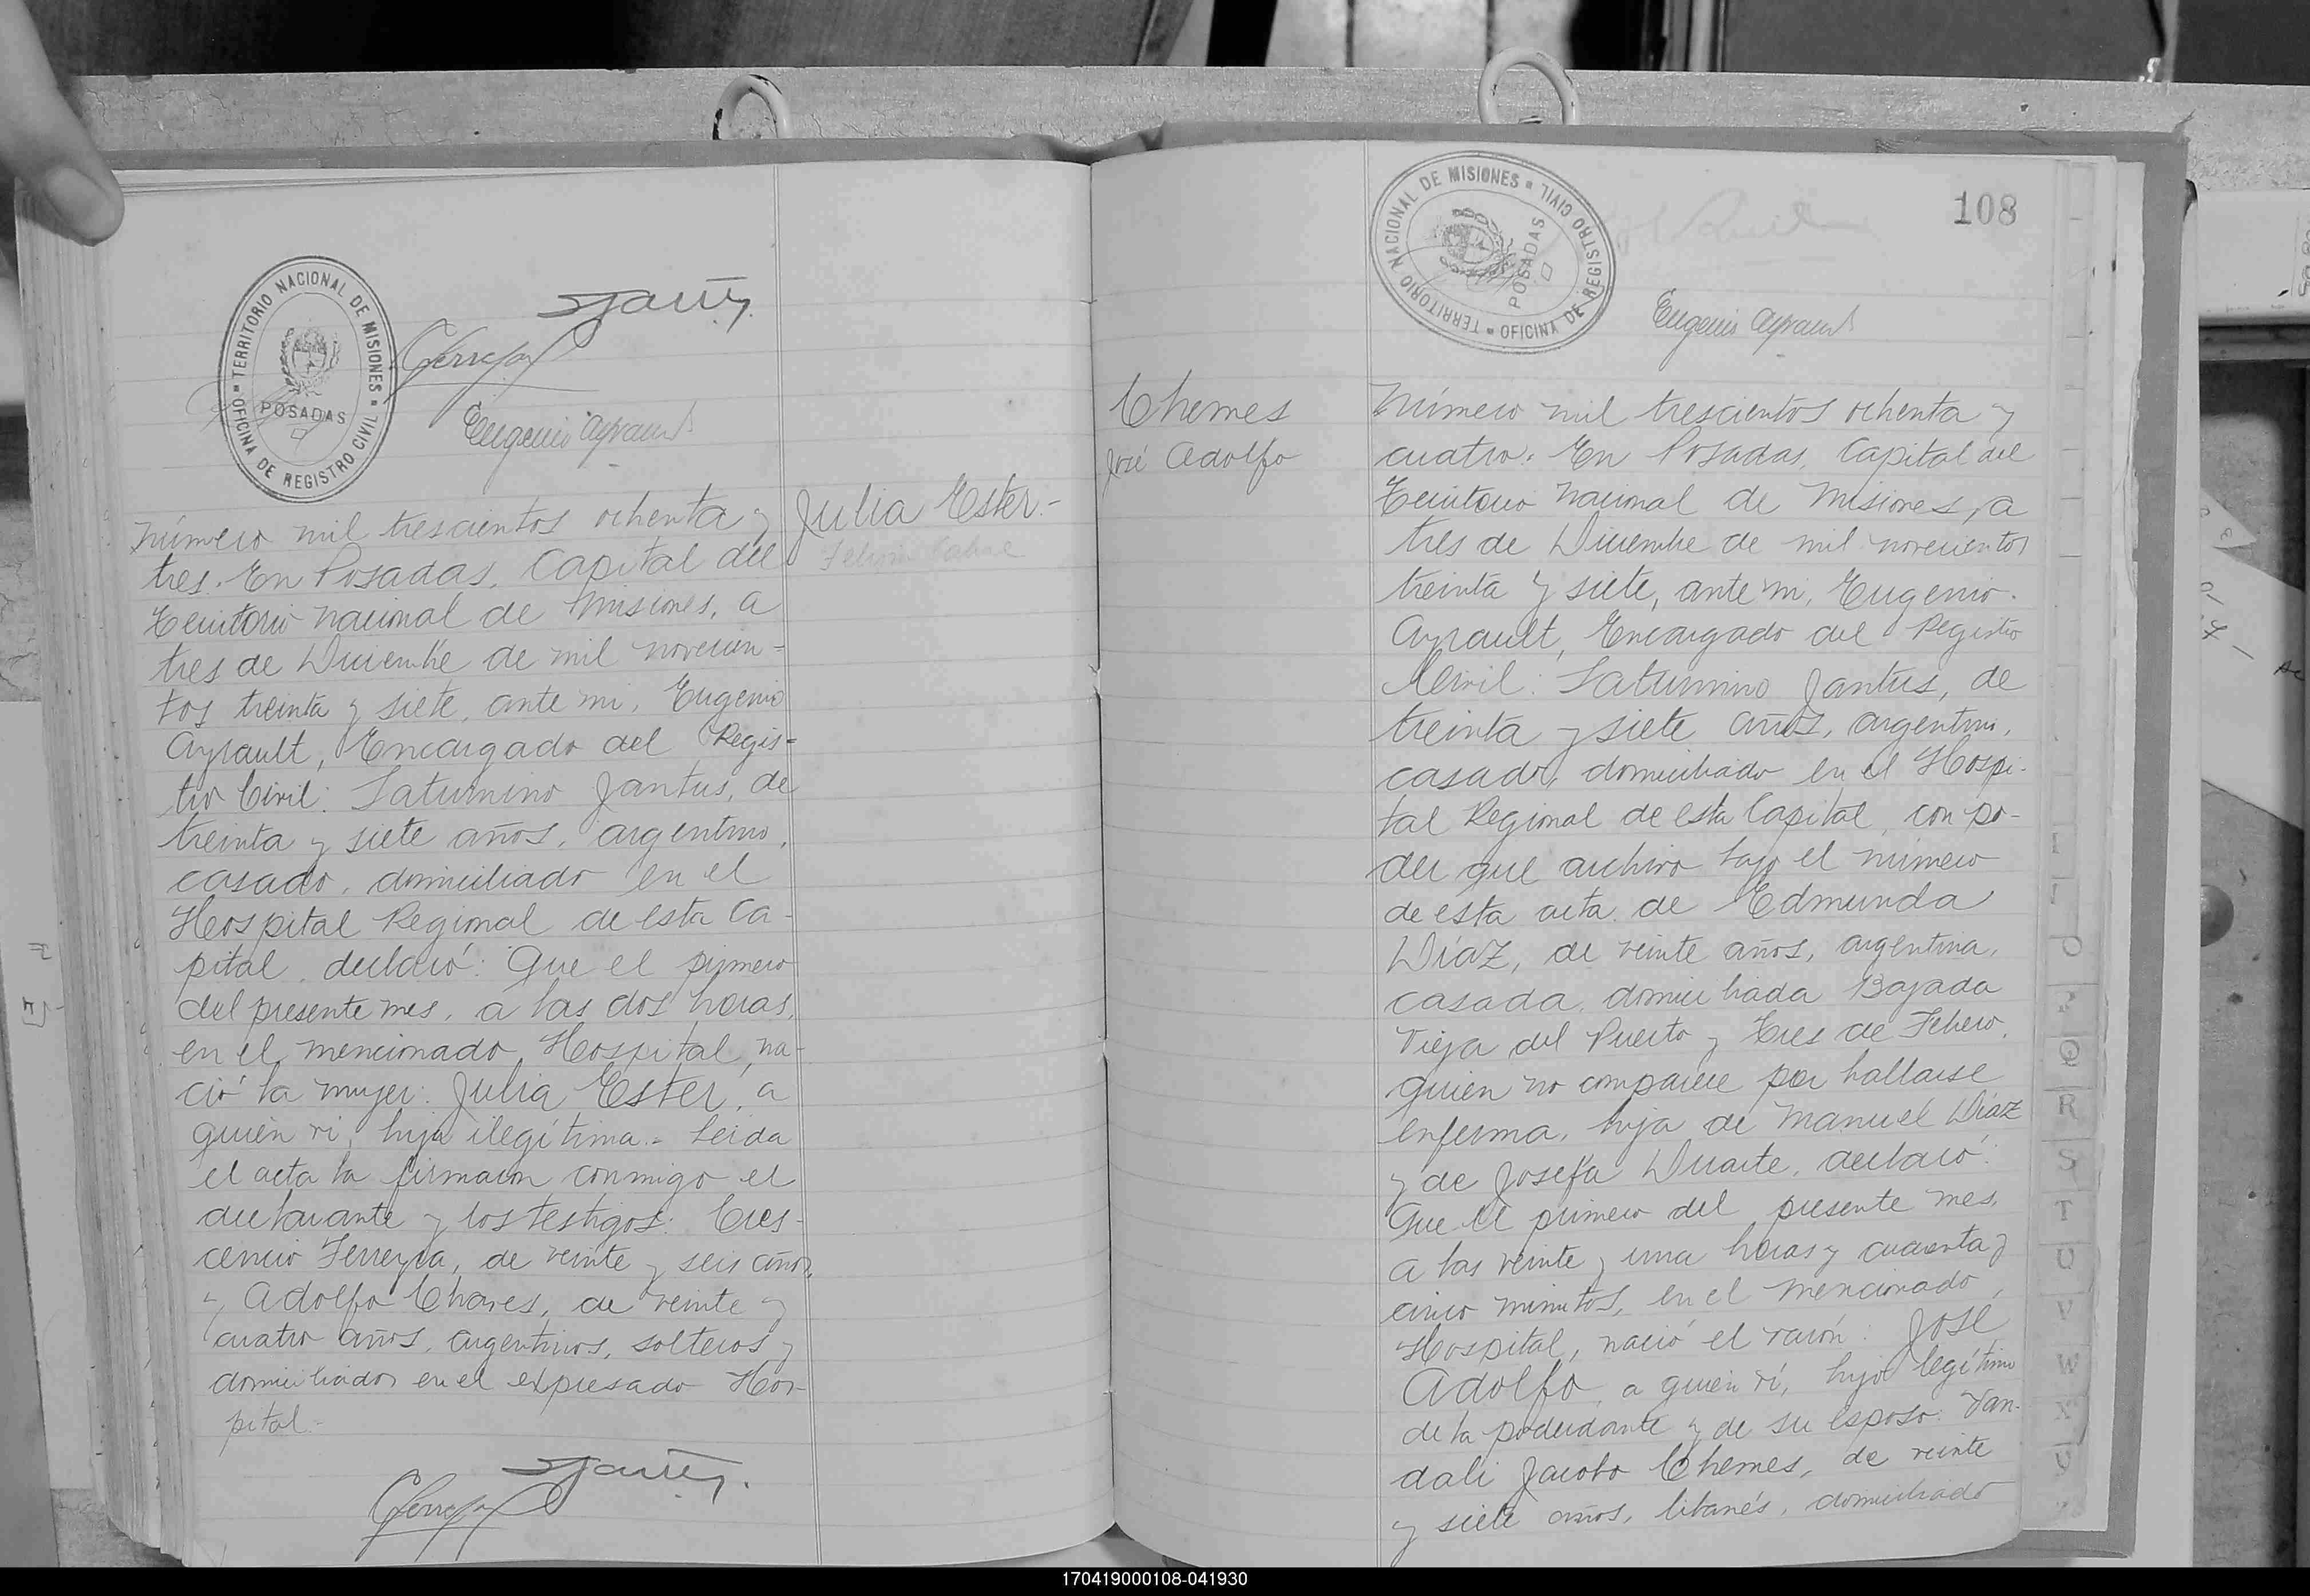 TERRITORIO NACIONAL DE MISIONES
OFICINA DE REGISTRO CIVIL
POSADAS
Eugenio Ayrault
Número mil trescientos ochenta y
tres. En Posadas, Capital del
Territorio Nacional de Misiones, a
tres de Diciembre de mil novecien-
tos treinta y siete, ante mi, Eugenio
Ayrault, Encargado del Regis-
tro Civil: Saturnino Jantus, de
treinta y siete años, argentino,
casado, domiciliado en el
Hospital Regional de esta Ca-
pital, declaró: Que el primero
del presente mes, a las dos horas,
en el mencionado Hospital, na-
ció la mujer: Julia Ester, a
quién ví, hija ilegítima.- Leida
el acta la firmaron conmigo el
declarante y los testigos: Cres-
cencio Ferreyra, de veinte y seis años,
y Adolfo Chaves, de veinte y
cuatro años, argentinos, solteros y
domiciliados en el expresado Hos-
pital.-
Julia Ester.-
108
TERRITORIO NACIONAL DE MISIONES
OFICINA DE REGISTRO CIVIL
POSADAS
Eugenio Ayrault
Chemes
José Adolfo
Número mil trescientos ochenta y
cuatro. En Posadas, Capital del
Territorio Nacional de Misiones, a
tres de Diciembre de mil novecientos
treinta y siete, ante mi, Eugenio
Ayrault, Encargado del Registro
Civil: Saturnino Jantus, de
treinta y siete años, argentino,
casado, domiciliado en el Hospi-
tal Regional de esta Capital, con po-
der que archivo bajo el número
de esta acta de Edmunda
Díaz, de veinte años, argentina,
casada, domiciliada Bajada
Vieja del Puerto y Tres de Febrero,
quien no comparece por hallarse
enferma, hija de Manuel Díaz
y de Josefa Duarte, declaró:
Que el primero del presente mes,
a las veinte y una horas y cuarenta y
cinco minutos, en el mencionado
Hospital, nació el varón: José
Adolfo, a quién ví, hijo legítimo
de la poderdante y de su esposo: Van-
dali Jacobo Chemes, de veinte
y siete años, libanés, domiciliado
O
P
Q
R
S
T
U
V
W
X
Y
170419000108-041930